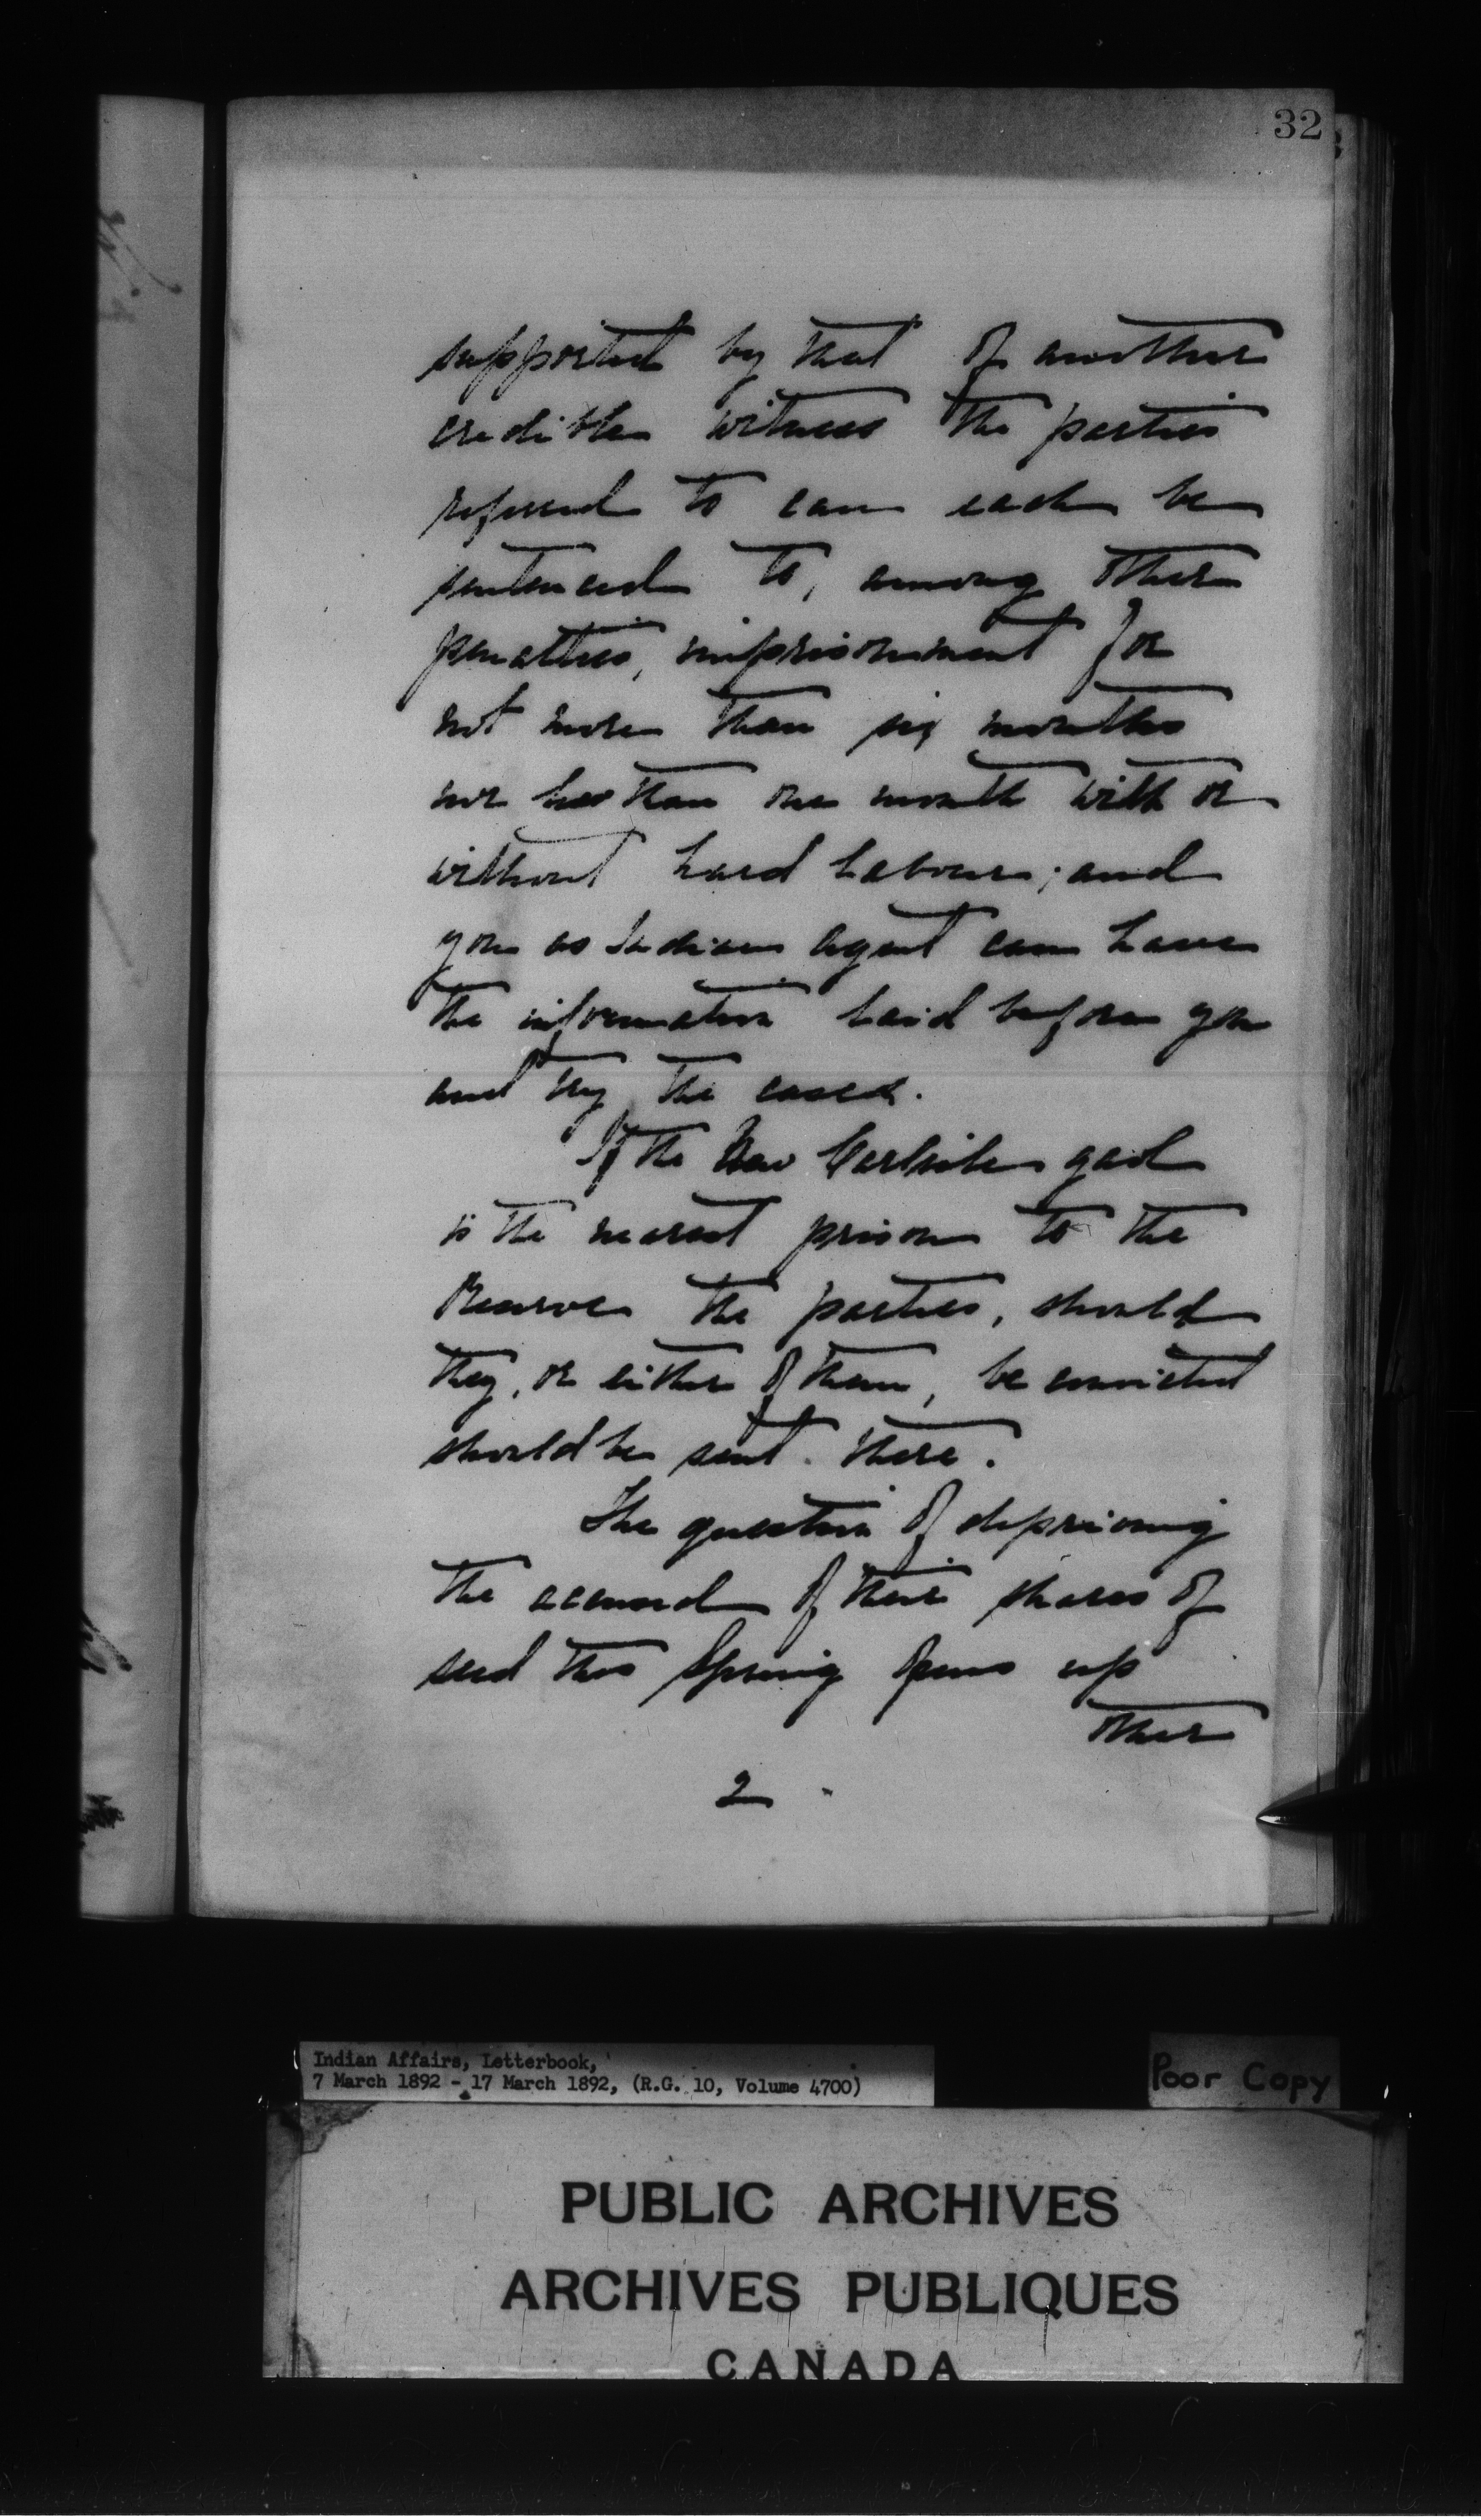 32
supported by that of another
credible witness the parties
referred to can each be
sentenced to, among other
penalties, imprisonment for
not more than six months
nor less than one month with or
without hard labour; and
you as Indian Agent can have
the information laid before you
and try the cases.
If the New Carlisle gaol
is the nearest prison to the
Reserve the parties, should
they, or either of them, be convicted
should be sent there.
The question of depriving
the accused of their shares of
seed this Spring opens up
other
2
Indian Affairs, Letterbook,
7 March 1892 - 17 March 1892, (R.G. 10, Volume 4700)
Poor Copy
PUBLIC ARCHIVES
ARCHIVES PUBLIQUES
CANADA